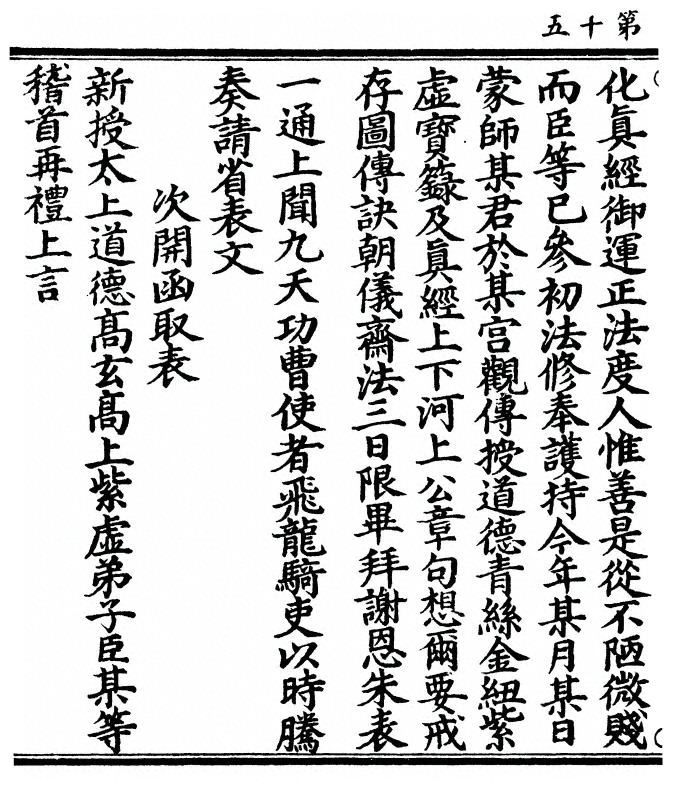 第十五
化眞經御運正法度人惟善是從不陋微賤
而臣等已參初法修奉護持今年某月某日
蒙師某君於某宫觀傳授道德青絲金紐紫
虛寶籙及眞經上下河上公章句想爾要戒
存圖傳訣朝儀齋法三日限畢拜謝恩朱表
一通上聞九天功曹使者飛龍騎吏以時騰
奏請省表文
次開函取表
新授太上道德髙玄髙上紫虛弟子臣某等
稽首再禮上言